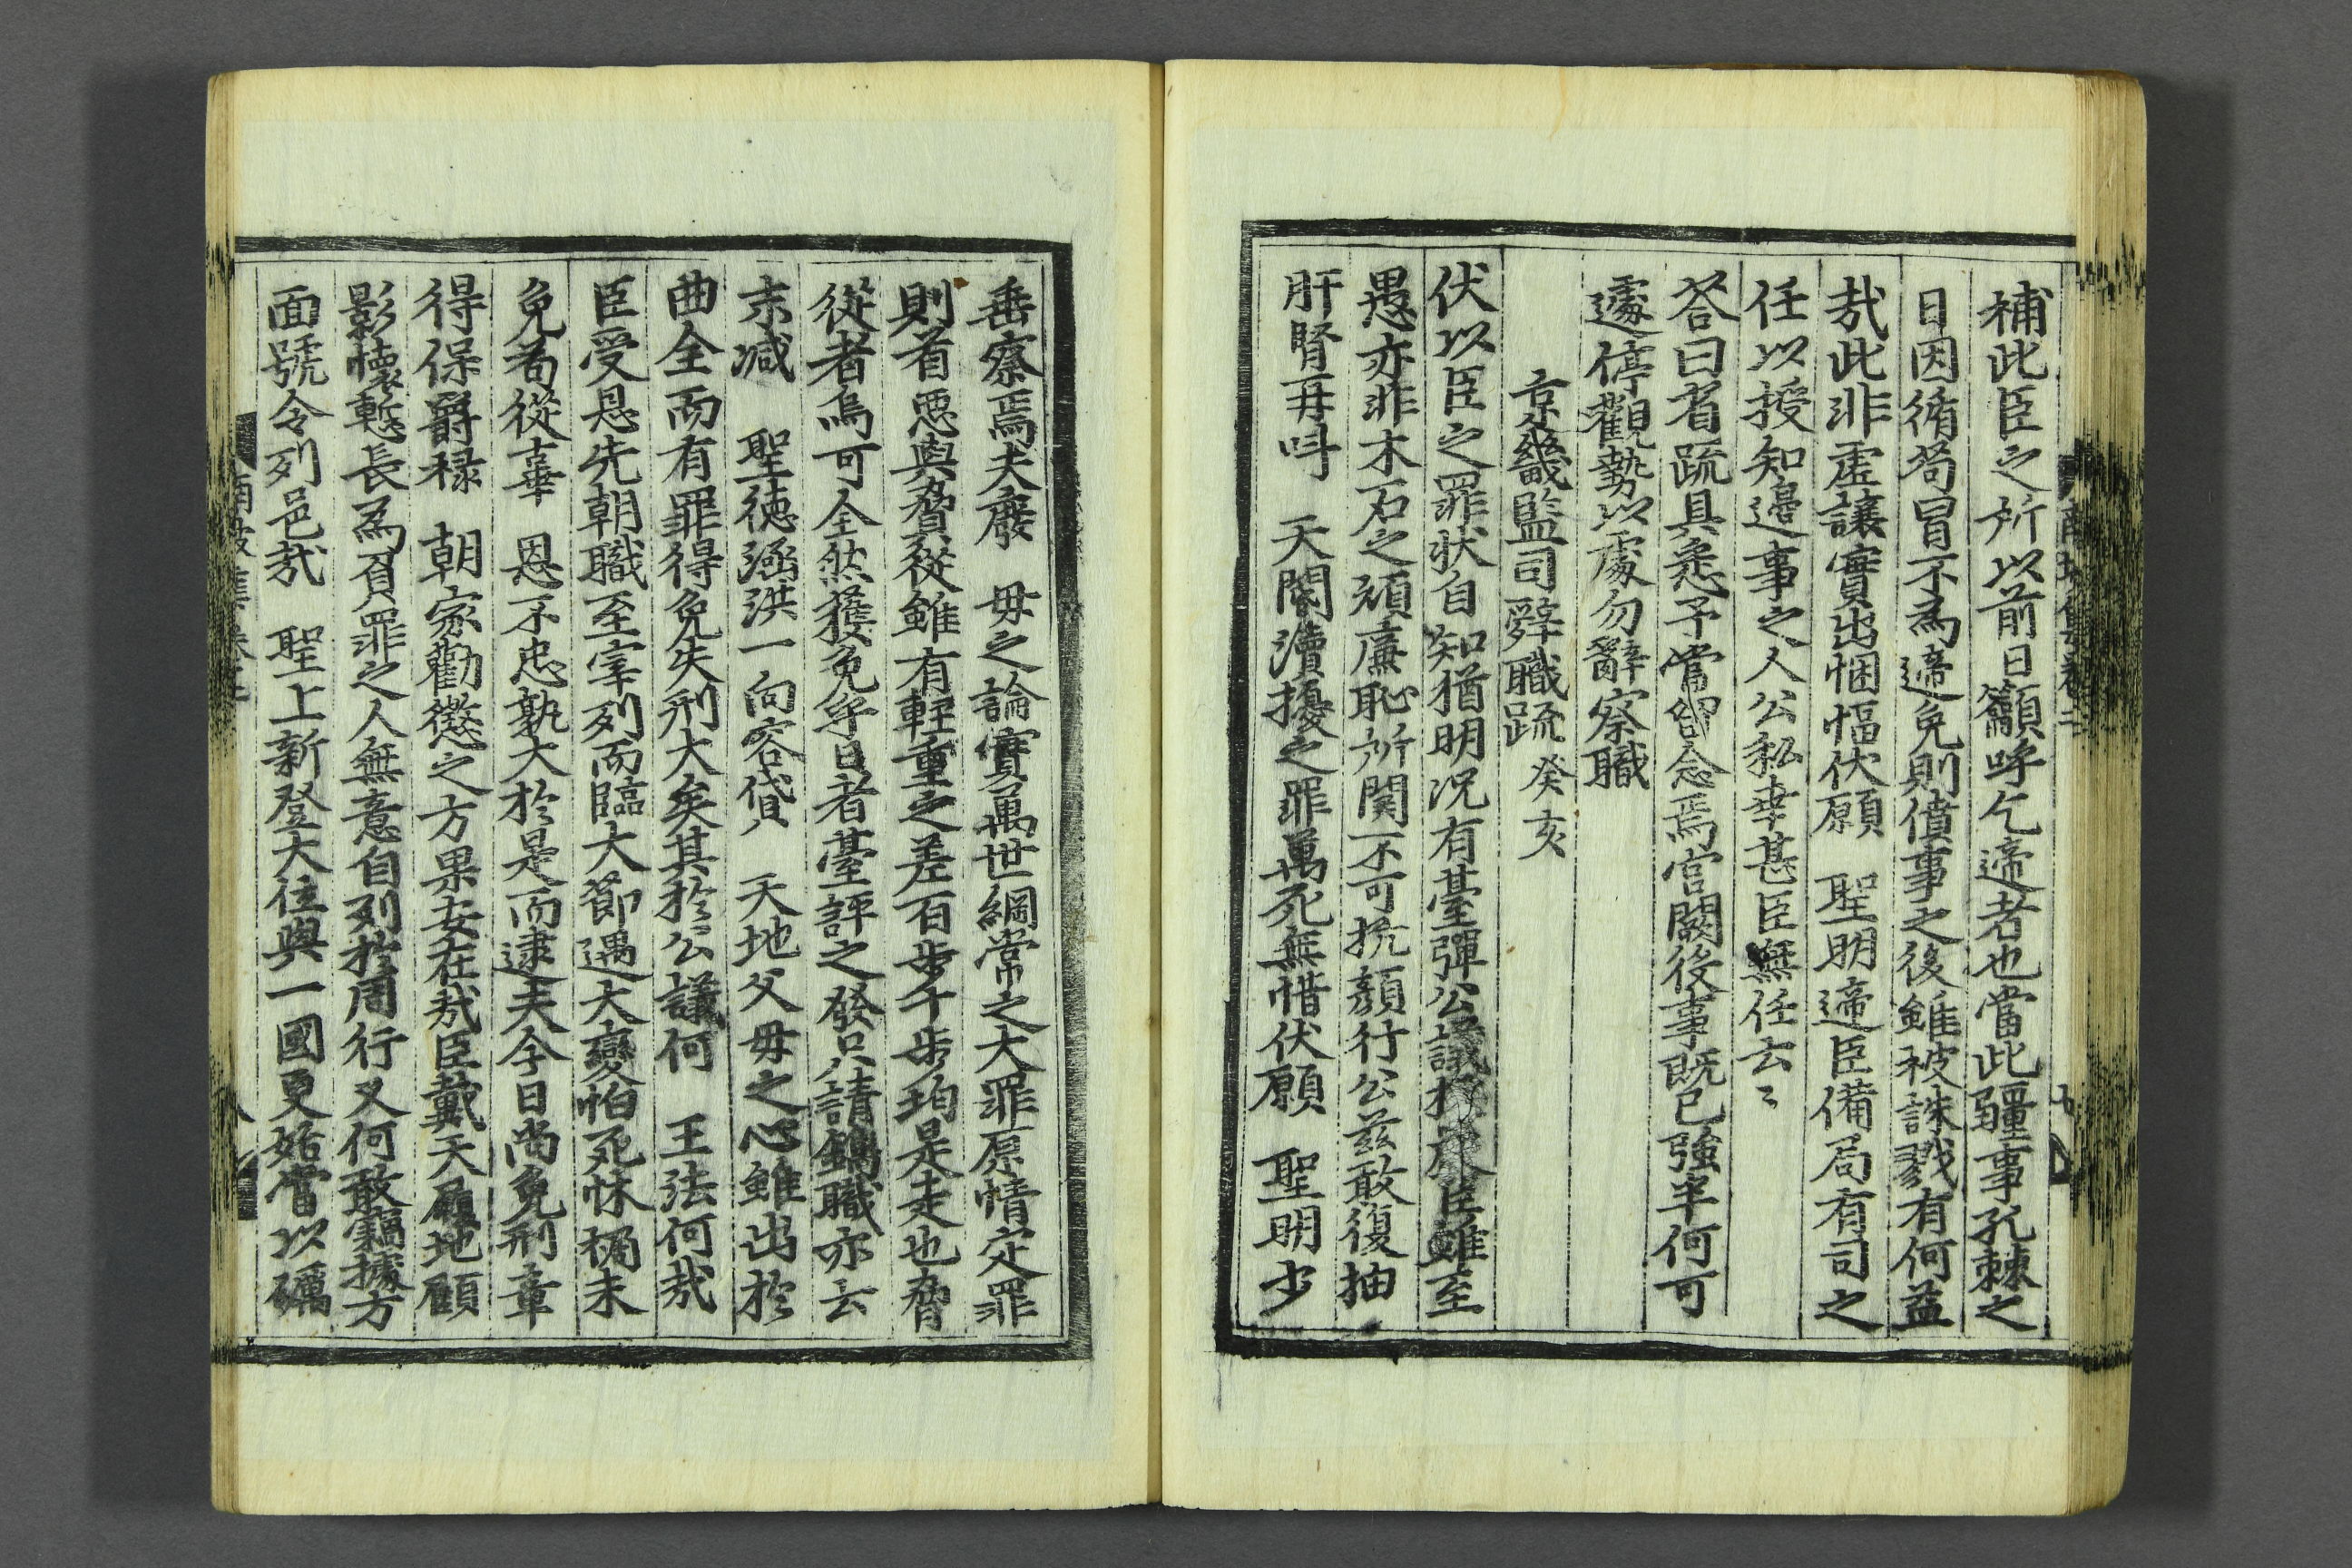 補此臣之所以前日籲呼乞遆者也當此疆事孔棘之
日因循苟冒不為遆免則僨事之後雖被誅戮有何益
㢤此非虛讓實出悃愊伏願 聖明遆臣備局有司之
任以授知邊事之人公私幸甚臣無任云〻
答曰省疏具悉予當留念焉宮闕役事既已強半何可
遽停觀勢以處勿辭察職
京畿監司辭職疏 癸亥
伏以臣之罪狀自知猶明况有臺彈公議 臣雖至
愚亦非木石之頑廉恥所関不可抗顏行公玆敢復抽
肝腎再呌 天閽瀆擾之罪萬死無惜伏願 聖明少
垂察焉夫廢 毋之論實萬世綱常之大罪原情定罪
則首惡與脅從雖有輕重之差百步千步均是走也脅
從者烏可全然獲免乎日者臺評之發只請鐫職亦云
末减 聖徳涵洪一向容貸 天地父毋之心雖出於
曲全而有罪得免失刑大矣其於公議何 王法何㢤
臣受恩先朝職至宰列而臨大節遇大變怕死怵禍未
免苟從幸 恩不忠孰大於是而逮夫今日尚免刑章
得保爵祿 朝家勸懲之方果安在㢤臣戴天履地顧
影懐慙長為負罪之人無意自列於周行又何敢竊據方
面號令列邑㢤 聖上新登大位與一國更始當以礪